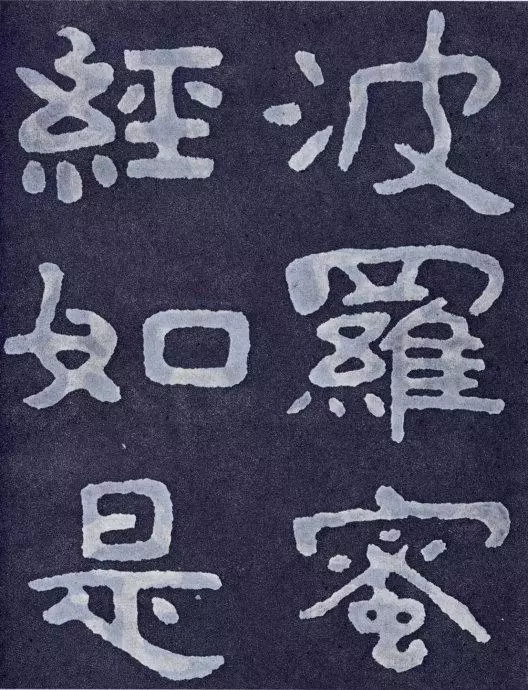 波羅蜜
經如是